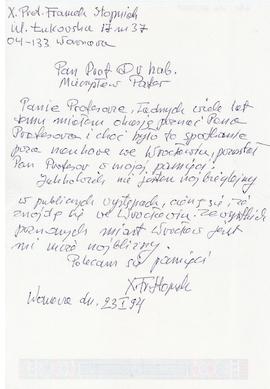 X. Prof. Franek Stopniak
Ul. Łukowska 17 m 37
04-133 Warszawa
Pan Prof Dr hab.
Mieczysław Pater
Panie Profesorze, ładnych wiele lat
temu miałem okazję poznać Pana
Profesora i choć było to spotkanie
poza naukowe we Wrocławiu, pozostał
Pan Profesor w mojej pamięci.
nie jestem najbieglejszy
w publicznych występach, cieszę się, że
znajdę się we Wrocławiu. Ze wszystkich
poznanych miast Wrocław jest
mi najbliższy.
Polecam się pamięci
X Fr Stopniak
Warszawa dn. 23 I 94